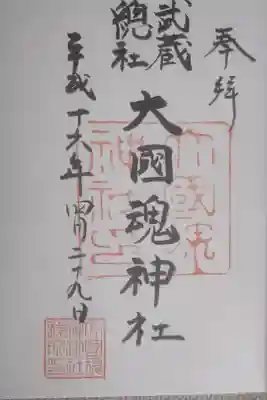 奉拝
武蔵
總社
大國魂神社
平成十六年四月二十九日